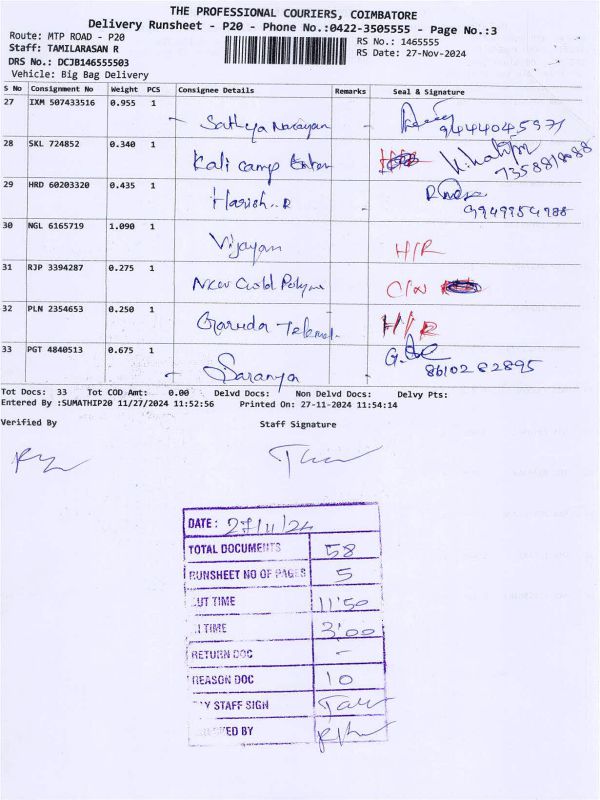 THE PROFESSIONAL COURIERS, COIMBATORE
Delivery Runsheet - P20 - Phone No.:0422-3505555 - Page No.:3
Route: MTP ROAD - P20
Staff: TAMILARASAN R
RS No.: 1465555
DRS No.: DCJB146555503
RS Date: 27-Nov-2024
Vehicle: Big Bag Delivery
S No Consignment No Weight PCS Consignee Details Remarks Seal & Signature
27 IXM 507433516 0.955 1 Sathya Narayan 9444045971
28 SKL 724852 0.340 1 Kali camp
29 HRD 60203320 0.435 1 Harish. R
30 NGL 6165719 1.090 1 Vijayan H/R
31 RJP 3394287 0.275 1
32 PLN 2354653 0.250 1 Garuda H/R
33 PGT 4840513 0.675 1 Saranya 8610282895
Tot Docs: 33 Tot COD Amt: 0.00 Delvd Docs: Non Delvd Docs: Delvy Pts:
Entered By :SUMATHIP20 11/27/2024 11:52:56 Printed On: 27-11-2024 11:54:14
Verified By Staff Signature
DATE: 27/11/24
TOTAL DOCUMENTS 58
RUNSHEET NO OF PAGES 5
UT TIME 11'50
I TIME 3'00
RETURN DOC -
REASON DOC 10
Y STAFF SIGN
KED BY